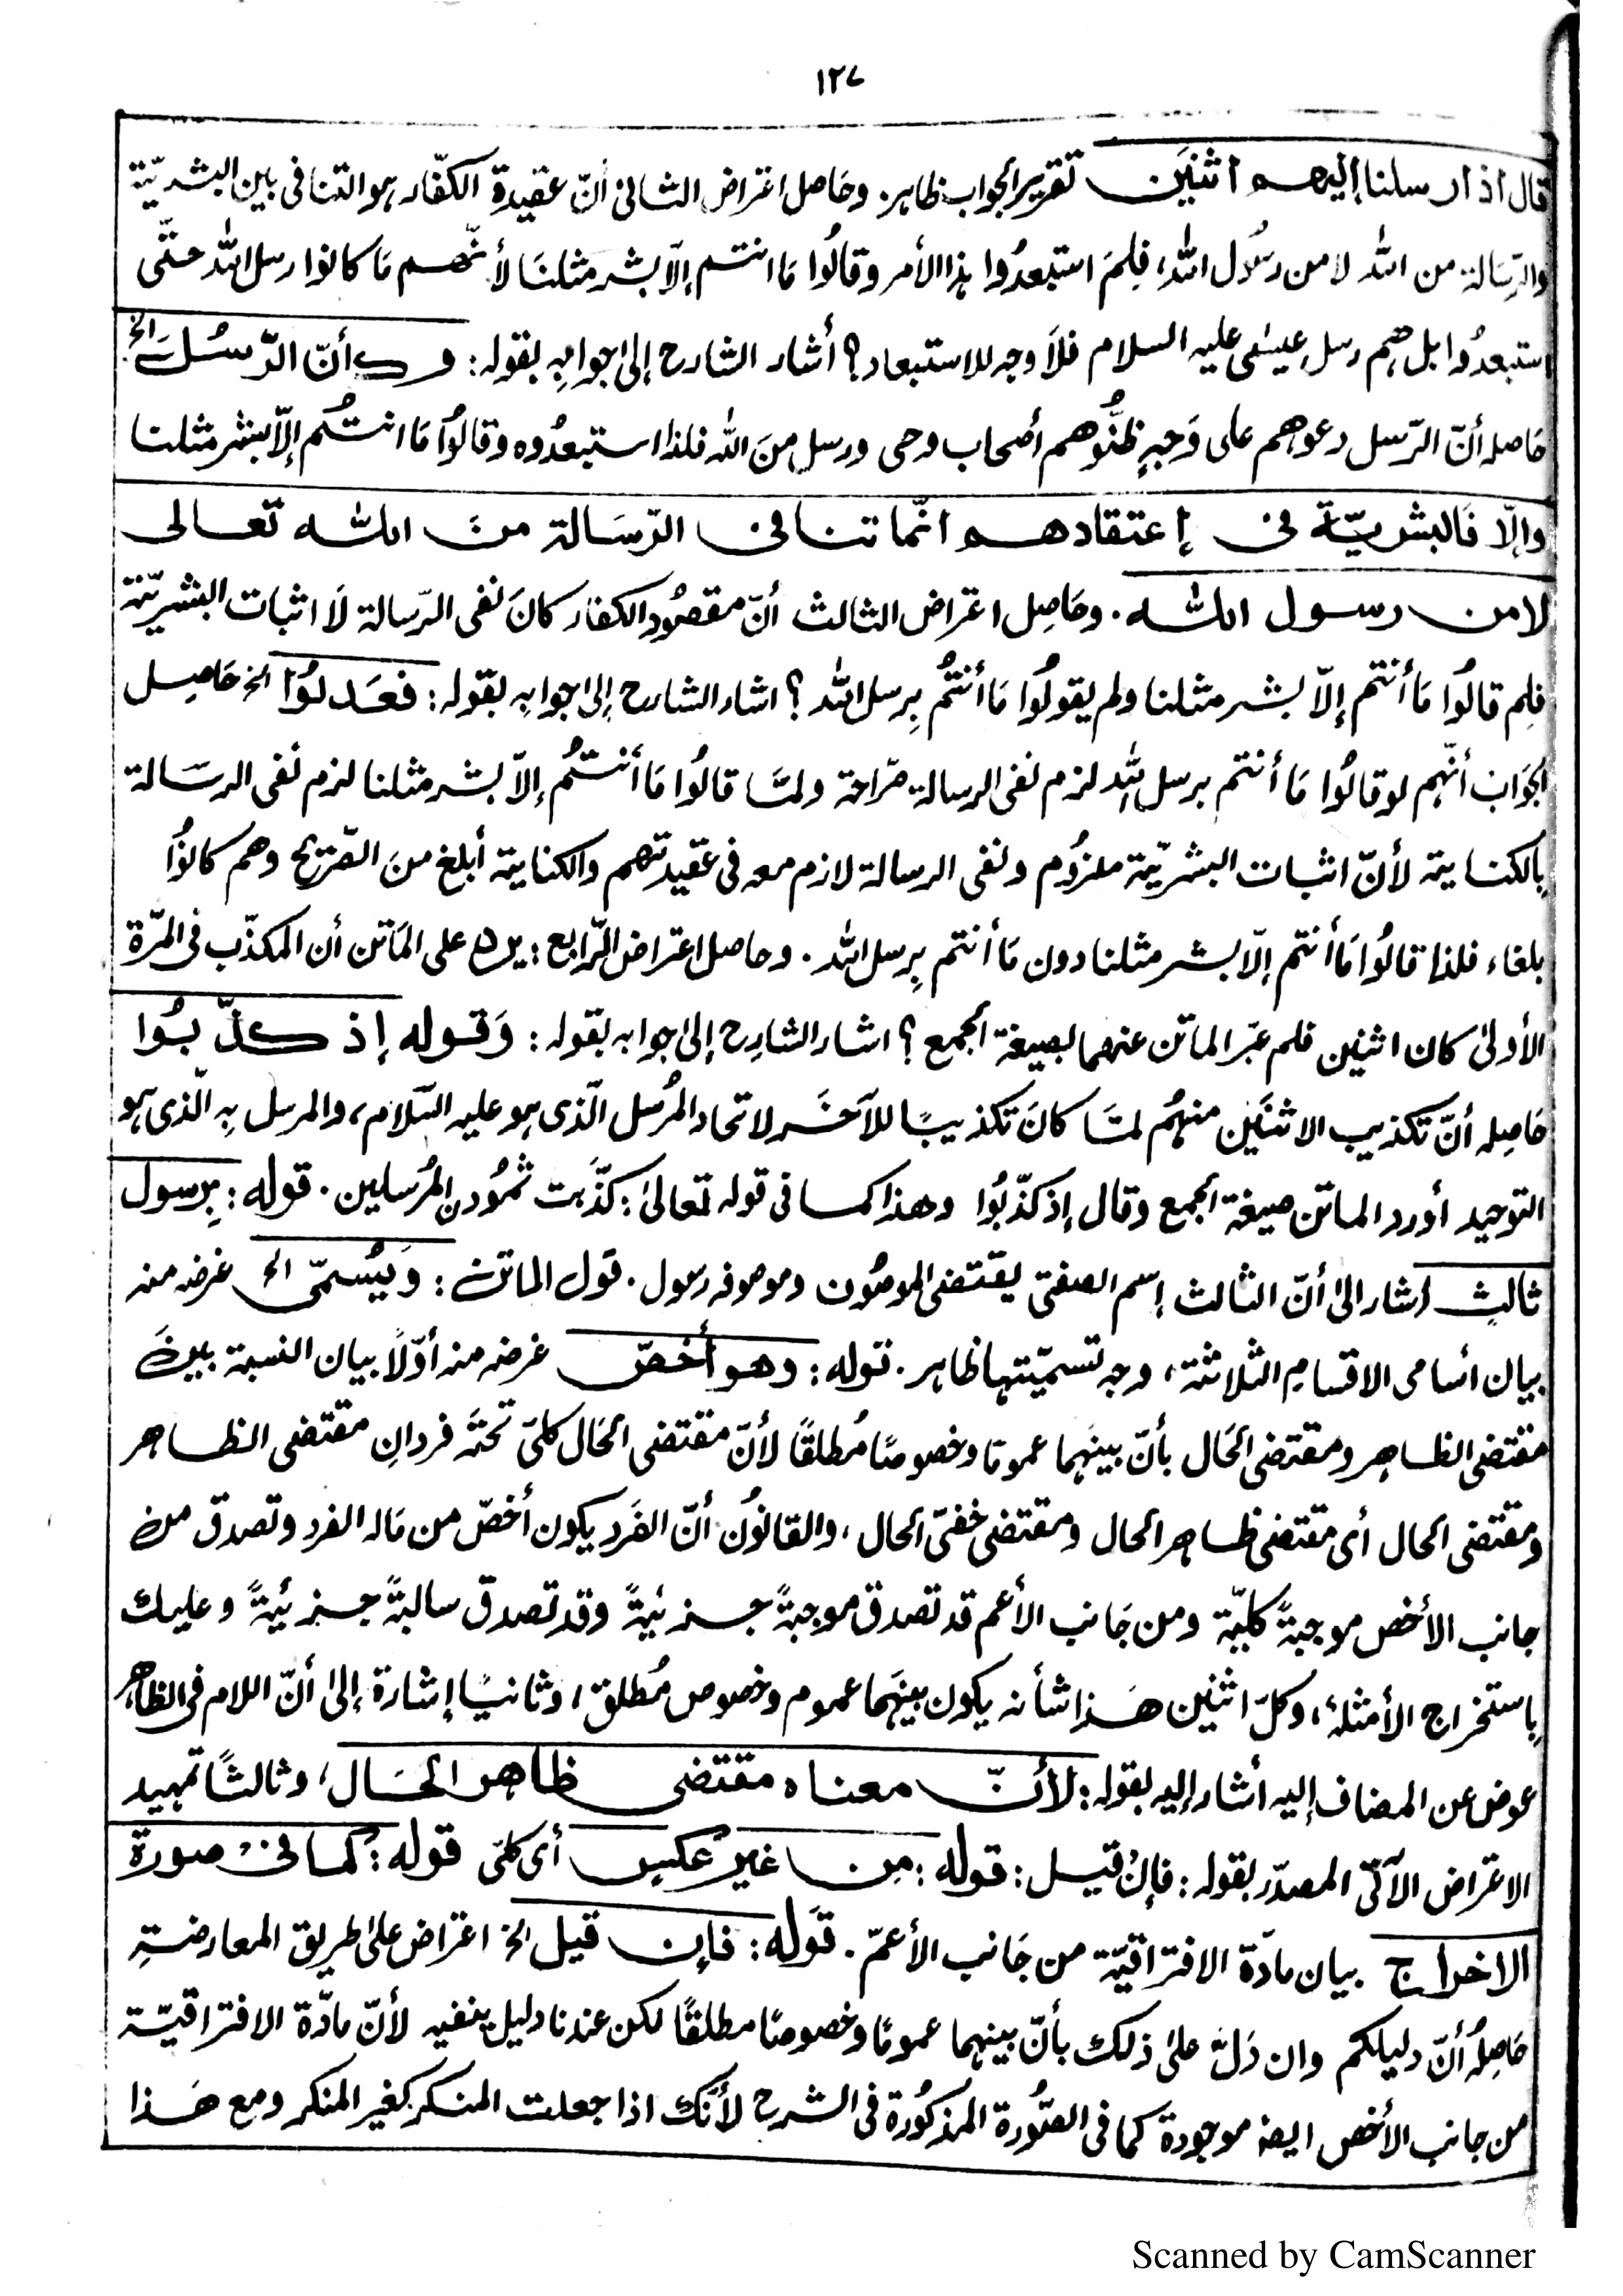 ١٢٧
قال اذ ارسلنا إليهم اثنين تقرير الجواب ظاهر. وحاصل اعتراض الثانى أنّ عقيدة الكفّار هو التنافى بين البشريّة
والرّسالة من الله لا من رسُول الله، فلِمَ استبعدُوا هذا الأمر وقالُوا مَا انتم إلّا بشر مثلنَا لأنّهم مَا كانوا رسل الله حتّى
استبعدُوا بل هم رسل عيسٰى عليه السلام فلَا وجه للاستبعاد؟ أشار الشارح إلىٰ جوابِه بقوله: وكأنّ الرّسُلَ الخ
حَاصله أنّ الرّسل دعوهم على وَجهٍ ظنُّوهم أصحاب وحى ورسل منَ الله فلذا استبعدُوه وقالُوا مَا انتُم إلّا بشر مثلنا
وإلّا فَالبشريّة فى إعتقادهم انّما تنافى الرّسَالة منَ الله تعالى
لا من رسول الله. وحَاصِل اعتراض الثالث أنّ مقصُود الكفار كانَ نفى الرّسالة لَا اثبات البشريّة
فلِم قالُوا مَا أنتم إلّا بشر مثلنا ولم يقولُوا مَا أنتُم بِرسل الله؟ اشار الشارح إلىٰ جوابِه بقوله: فعَدلوُا الخ حَاصِل
الجَواب أنّهم لو قالُوا مَا أنتم برسل الله لزم نفى الرسالة صَراحة ولمّا قالُوا مَا أنتُم إلّا بشر مثلنا لزم نفى الرسَالة
بِالكناية لأنّ اثبات البشريّة ملزُوم ونفى الرسالة لازم معه فى عقيدتهم والكناية أبلغ منَ الصّريح وهم كانُوا
بلغاء فلذا قالُوا مَا أنتم إلّا بشر مثلنا دون مَا أنتم بِرسل الله. وحاصل اعتراض الرّابع: يرد على المَاتن أن المكذّب فى المرّة
الأولىٰ كان اثنين فلم عبّر الماتن عنهما بصيغة الجمع؟ اشار الشارِح إلىٰ جوابه بقوله: وَقوله إذ كذّبُوا
حَاصِله أنّ تكذيب الاثنَين منهُم لمّا كانَ تكذيبًا للآخَر لاتحاد المُرسل الّذى هو عليه السّلام، والمرسل بِه الّذى هو
التوحيد أورد الماتن صيغة الجمع وقال إذ كذّبُوا وهذا كما فى قوله تعالىٰ: كذّبت ثمُود المُرسلين. قوله: بِرسول
ثالثٍ اشار الىٰ أنّ الثالث إسم الصفتى يقتضى الموصُوف وموصوفه رسول. قول الماتن: وَيُسمّى الخ غرضه منه
بيان اسامى الاقسامِ الثلاثة، وجه تسميّتها ظاهر. قوله: وهو أخصّ غرضه منه أوّلًا بيان النسبة بين
مقتضى الظاهر ومقتضى الحَال بأنّ بينَهما عمومًا وخصوصًا مُطلقًا لأنّ مقتضى الحَال كلىّ تحتَه فردانِ مقتضى الظاهر
ومقتضى الحال أى مقتضى ظاهر الحال ومقتضى خفىّ الحال، والقانُونُ أنّ الفَرد يكون أخصّ من مَاله الفرد وتصدق من
جانب الأخص موجبةً كليّة ومن جَانب الأعم قد تصدق موجبةً جزئيةً وقد تصدق سالبةً جزئيةً وعليك
بِاستخراج الأمثلة، وكلّ اثنين هَذا شأنه يكون بينَهما عموم وخصوص مُطلق، وثانيًا إشارة إلىٰ أنّ اللام فى الظاهر
عوض عن المضاف إليه أشار إليه بقوله: لأنّ معناه مقتضى ظاهر الحَال، وثالثًا تمهيد
الاعتراض الآتىّ المصدّر بقوله: فإنْ قيل: قوله: مِن غير عكسٍ أى كلىّ قوله: كما فى صورة
الاخراج بيان مادّة الافتراقيّة من جَانب الأعمّ. قوله: فإن قيل الخ اعتراض علىٰ طريق المعارضةِ
حَاصِلُه أنّ دليلكم وان دَلّ علىٰ ذلك بأنّ بينهما عمومًا وخصوصًا مطلقًا لكن عندنا دليل ينفيه لأنّ مادّة الافتراقيّة
من جانب الأخص ايضا موجودة كما فى الصُّورة المذكُورة فى الشرح لأنّك اذا جعلت المنكر كغير المنكر ومع هَذا
Scanned by CamScanner